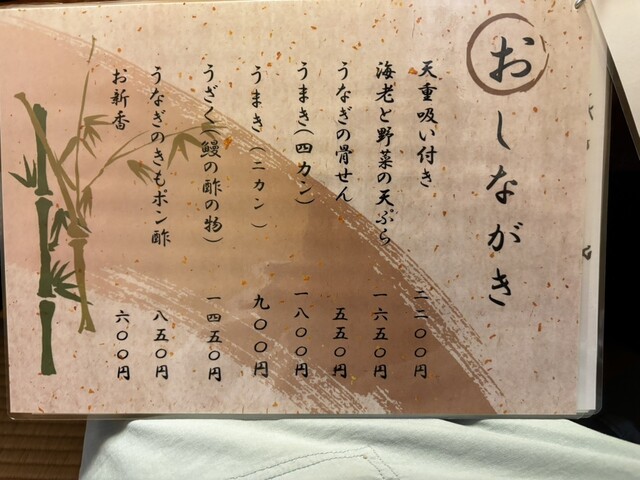 おしながき
天重吸い付き 二二〇〇円
海老と野菜の天ぷら 一六五〇円
うなぎの骨せん 五五〇円
うまき(四カン) 一八〇〇円
うまき(二カン) 九〇〇円
うざく(鰻の酢の物) 一四五〇円
うなぎのきもポン酢 八五〇円
お新香 六〇〇円